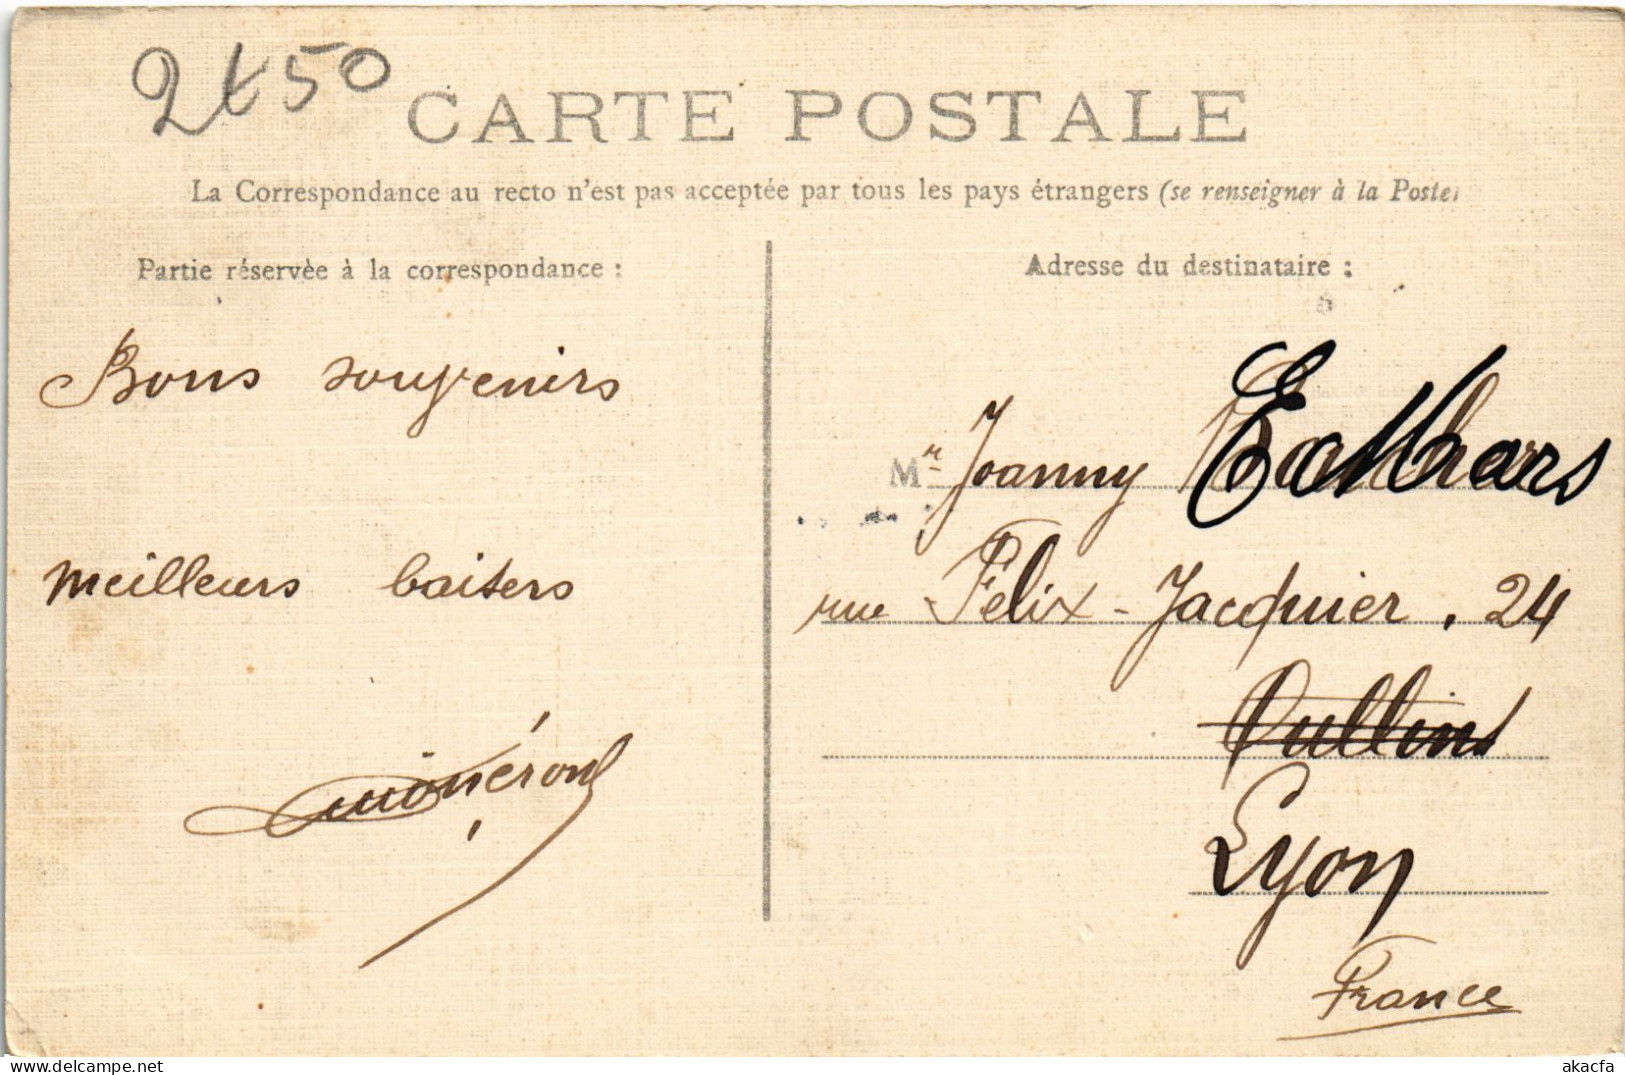 2f50
CARTE POSTALE
La Correspondance au recto n'est pas acceptée par tous les pays étrangers (se renseigner à la Poste)
Partie réservée à la correspondance :
Adresse du destinataire :
Bons souvenirs
Mr Joanny
meilleurs baisers
rue Félix-Jacquier. 24
Oullins
Lyon
France
akacfa